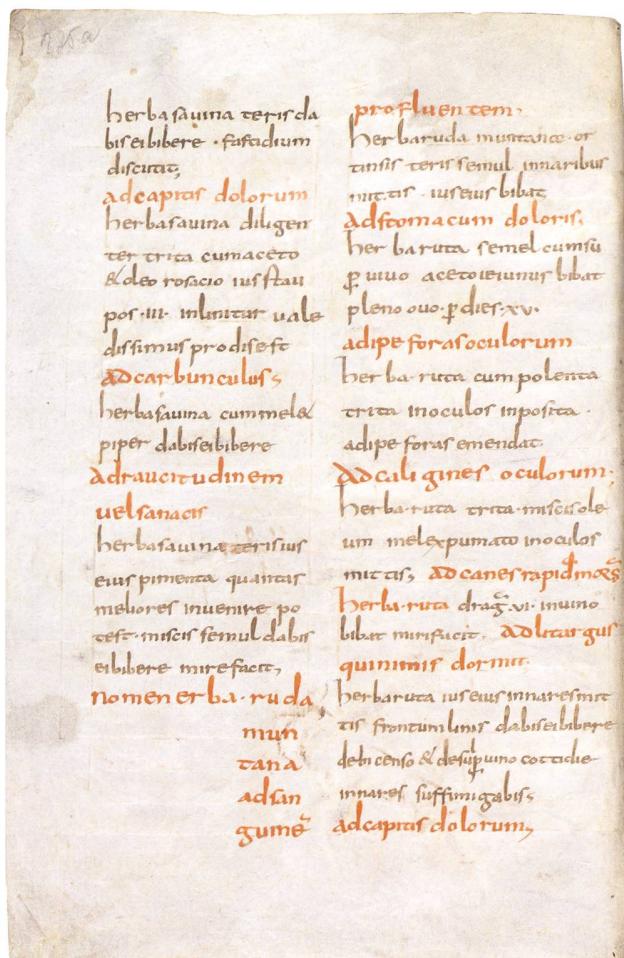 herbasauina teris da
bis ei bibere · fastidium
discutit;
ad capitis dolorum
herbasauina diligen
ter trita cum aceto
& oleo rosacio ius stau
pos · iii · inlinitur uale
dissimus prodis est
ad carbunculus;
herbasauina cum mel &
piper dabis ei bibere
ad raucitudinem
uel sanacis
herbasauina teris ius
eius pimenta quantas
meliores inuenire po
test · miscis semul dabis
ei bibere mire facit;
nomen erba · ruda
mun
tana
ad san
guinē
profluentem;
herba ruda muntance · or
tinsis teris semul in naribus
mittis · ius eius bibat
ad stomacum doloris;
herba ruta semel cum su
ꝑ uiuo aceto ieiunus bibat
pleno ouo · ꝑ dies · xv ·
adipe foras oculorum
herba · ruta cum polenta
trita in oculos inposita ·
adipe foras emendat
ad caligines oculorum;
herba · ruta trita · miscis ole
um mel expumato in oculos
mittis; ad canes
herba · ruta drag̅ · vi · in uino
bibat miri facit · ad litargus
qui nimis dormit ·
herba ruta ius eius in nares mit
tis frontum linis dabis ei bibere
de bi censo & desuꝑ uino cottidie
in nares suffumigabis;
ad capitis dolorum;